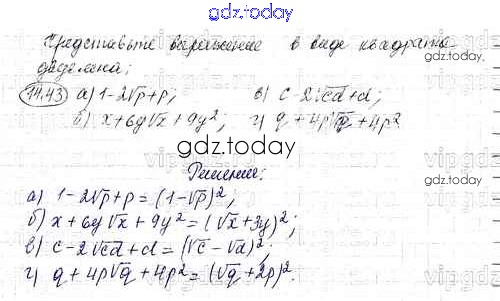 gdz.today
Представьте выражение в виде квадрата
двучлена:
14.43 а) 1-2√p+p; в) c-2√cd+d;
б) x+6y√x+9y²; г) q+4p√q+4p²
gdz.today
Решение:
а) 1-2√p+p=(1-√p)²;
б) x+6y√x+9y²=(√x+3y)²;
в) c-2√cd+d=(√c-√d)²;
г) q+4p√q+4p²=(√q+2p)².
gdz.today